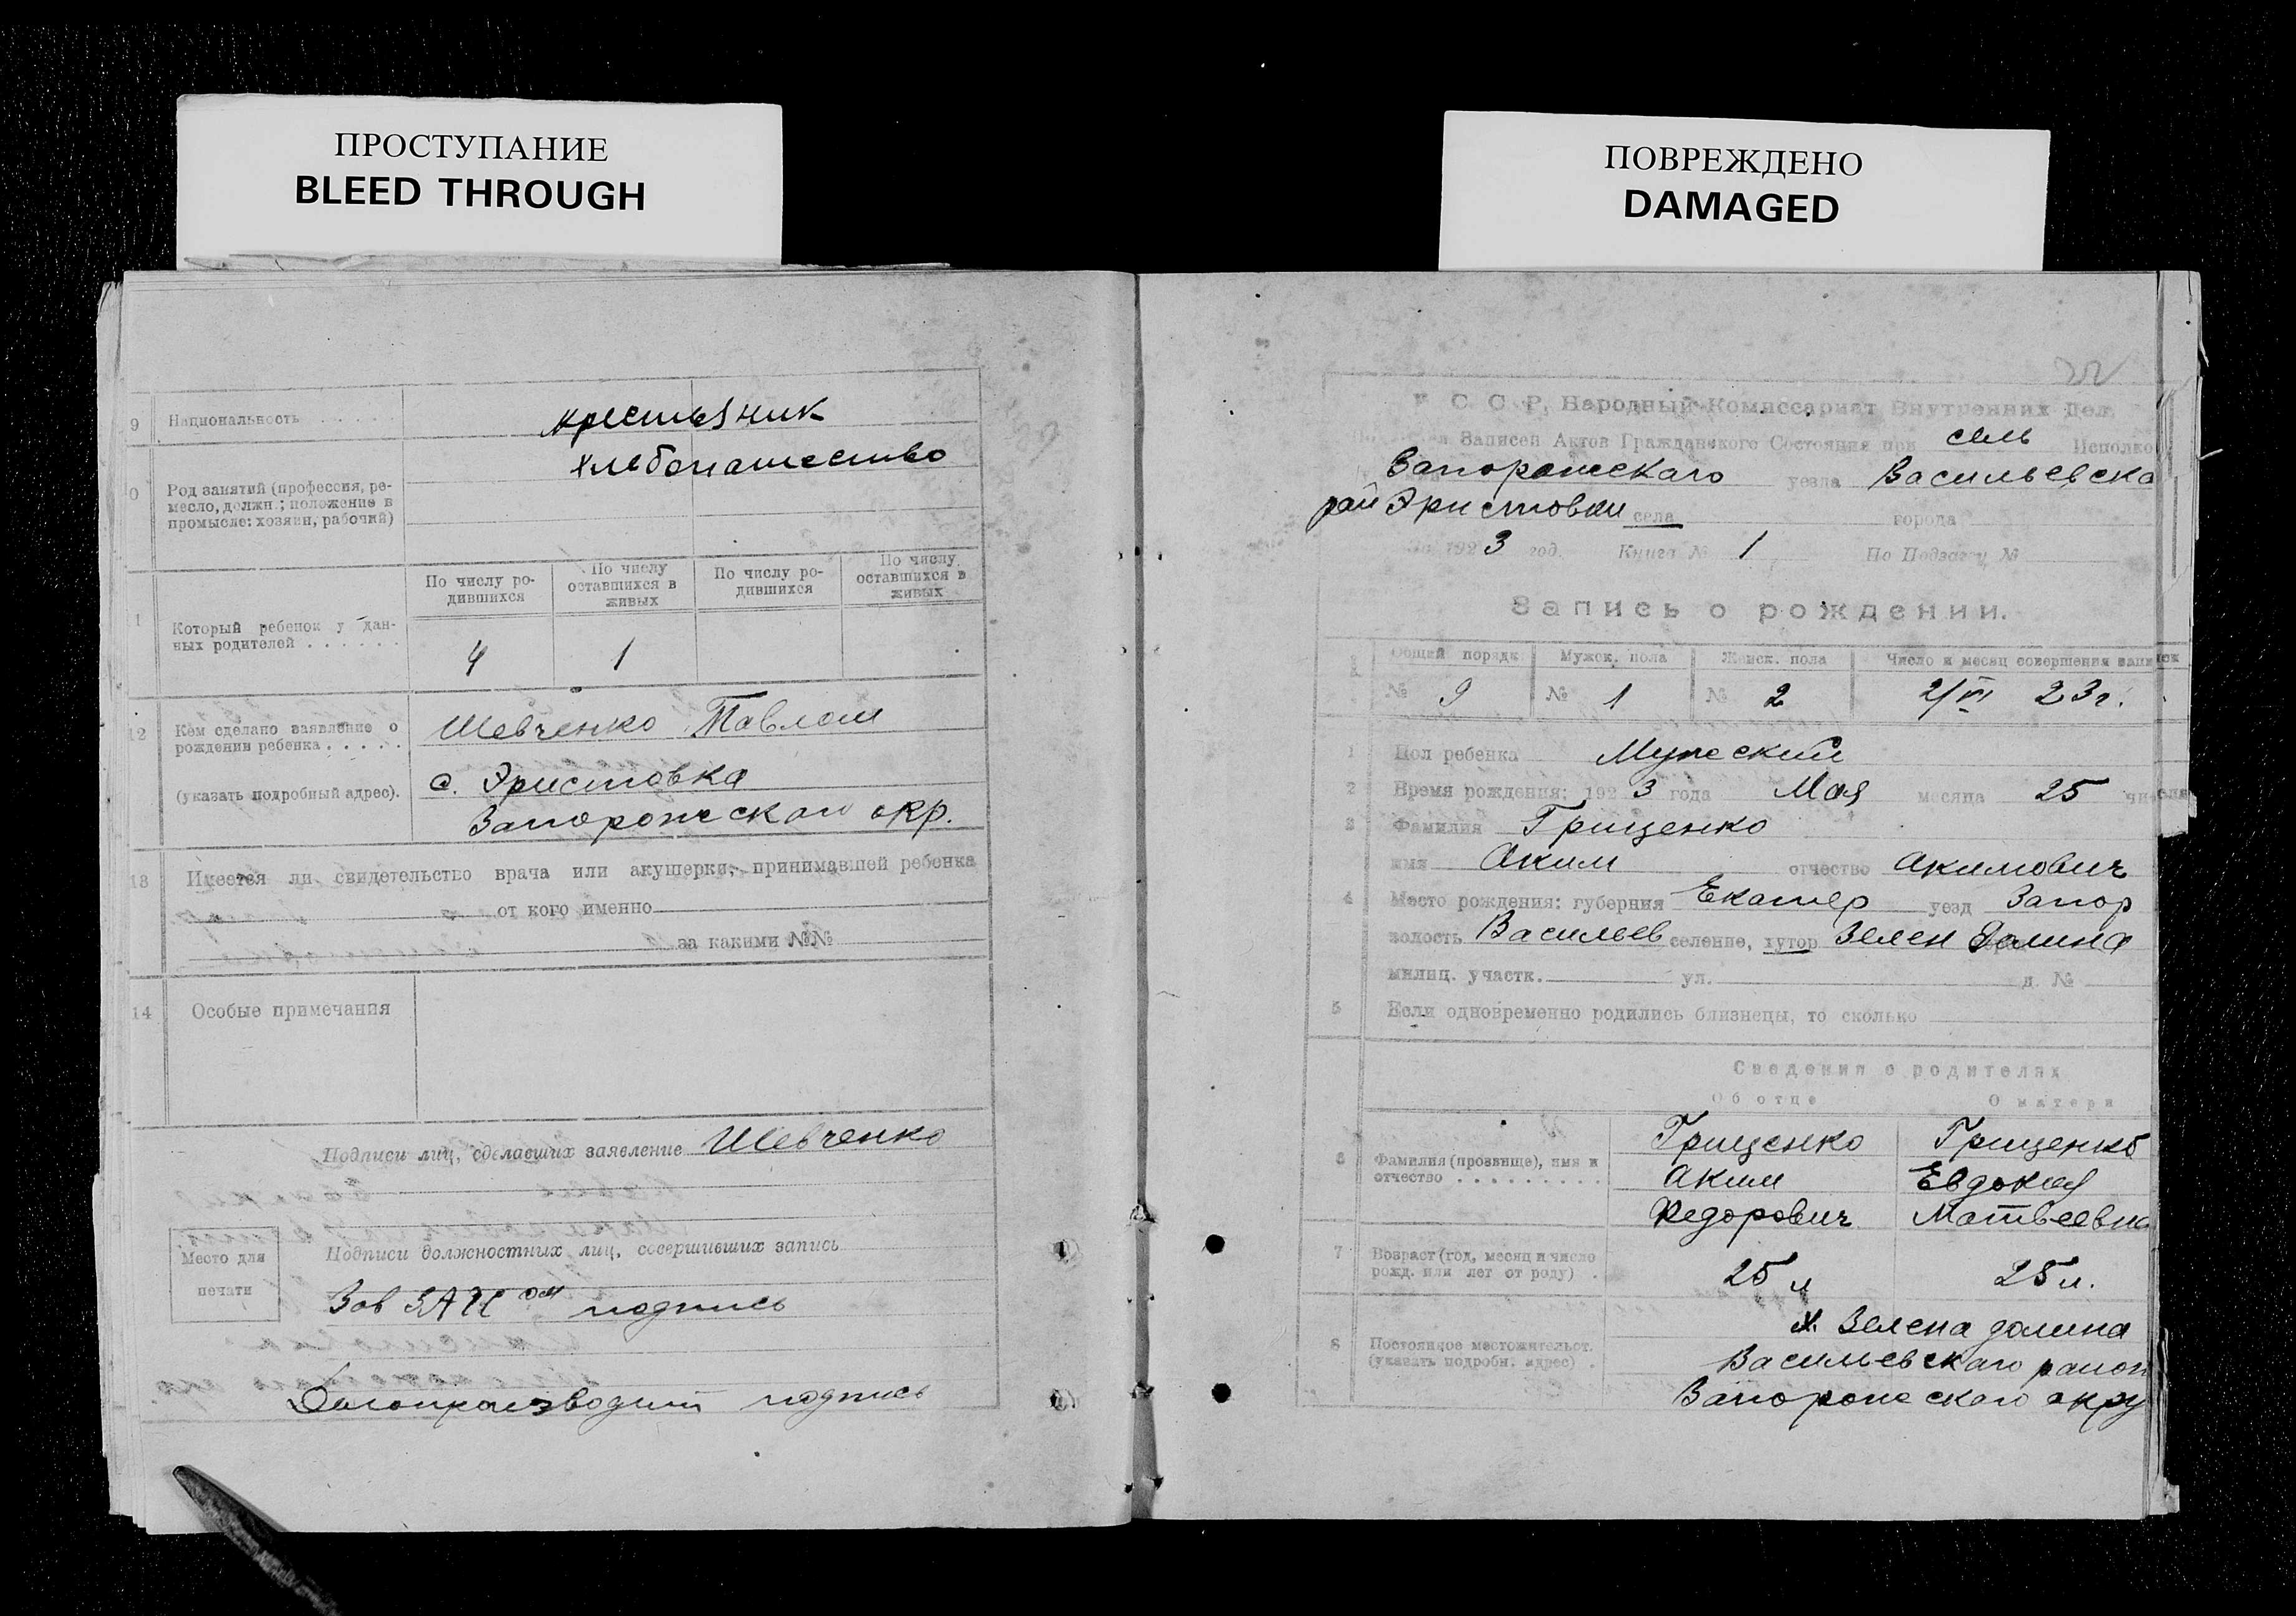 ПРОСТУПАНИЕ
BLEED THROUGH
9 Национальность . . . . . крестьяник
хлебопашество
0 Род занятий (профессия, ре-
месло, должн.; положение в
промысле: хозяин, рабочий)
1 Который ребенок у дан-
ных родителей . . . . . .
По числу ро-
дившихся
По числу
оставшихся в
живых
По числу ро-
дившихся
По числу
оставшихся в
живых
4 1
12 Кем сделано заявление о
рождении ребенка . . . . .
(указать подробный адрес).
Шевченко Павлом
с. Эристовка
Запорожскаго окр.
13 Имеется ли свидетельство врача или акушерки, принимавшей ребенка
от кого именно
за какими №№
14 Особые примечания
Подписи лиц, сделавших заявление Шевченко
Место для
печати
Подписи должностных лиц, совершивших запись
Зав ЗАГС ом подпись
Делопроизводит подпись
ПОВРЕЖДЕНО
DAMAGED
22
У. С. С. Р, Народный Комиссариат Внутренних Дел.
Записей Актов Гражданского Состояния при сель Исполко
Запорожскаго уезда Васильевска
рай Эристовки села города
192 3 год. Книга № 1 По Подзагс №
Запись о рождении.
Общий порядк Мужск. пола Женск. пола Число и месяц совершения записи
№ 9 № 1 № 2 2/VI 23 г.
1 Пол ребенка Мужеский
2 Время рождения: 192 3 года Мая месяца 25 числа
3 Фамилия Грищенко
имя Аким отчество Акимович
4 Место рождения: губерния Екатер уезд Запор
волость Васильев селение, хутор Зелен Долина
милиц. участк. ул. д. №
5 Если одновременно родились близнецы, то сколько
Сведения о родителях
Об отце О матери
6 Фамилия (прозвище), имя и
отчество . . . . . . . . .
Грищенко Грищенко
Аким Евдокия
Федорович Матвеевна
7 Возраст (год, месяц и число
рожд. или лет от роду) .
25 л 25 л.
8 Постоянное местожительст.
(указать подробн. адрес) .
х. Зелена долина
Васильевскаго район
Запорожскаго окру